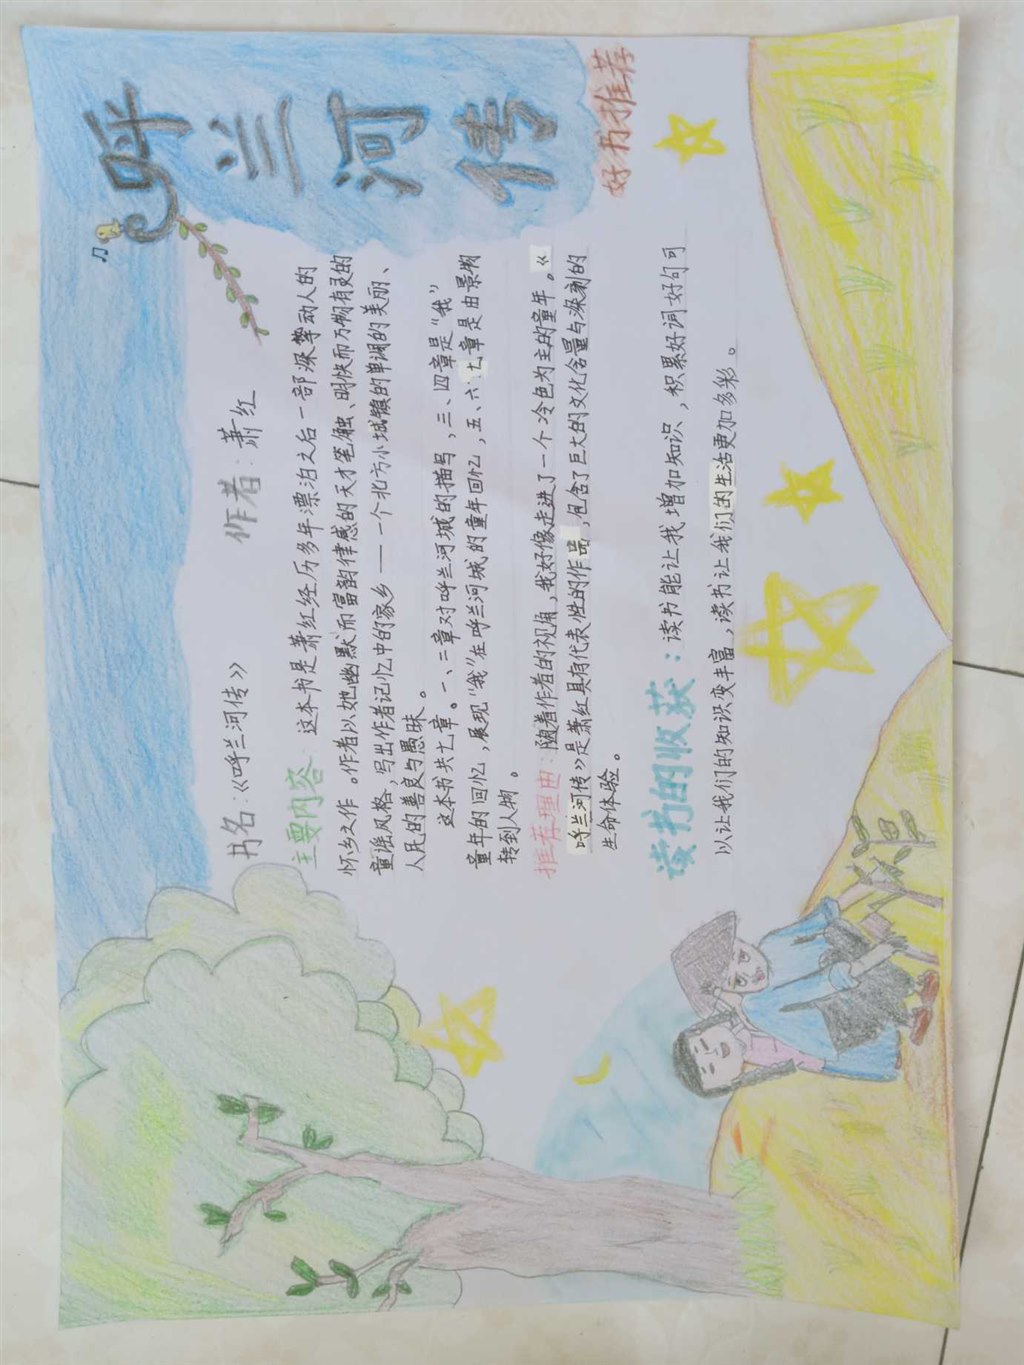 呼兰河传
好书推荐
书名:《呼兰河传》 作者:萧红
主要内容:这本书是萧红经历多年漂泊之后一部深挚动人的
怀乡之作。作者以她幽默而富韵律感的天才笔触、明快而万物有灵的
童谣风格,写出作者记忆中的家乡——一个北方小城镇的单调的美丽、
人民的善良与愚昧。
这本书共七章。一、二章对呼兰河城的描写,三、四章是“我”
童年的回忆,展现“我”在呼兰河城的童年回忆,五、六七章是由景物
转到人物。
推荐理由:随着作者的视角,我好像走进了一个冷色为主的童年。《
呼兰河传》是萧红具有代表性的作品,包含了巨大的文化含量与深刻的
生命体验。
读书的收获:读书能让我增加知识,积累好词好句可
以让我们的知识变丰富,读书让我们的生活更加多彩。